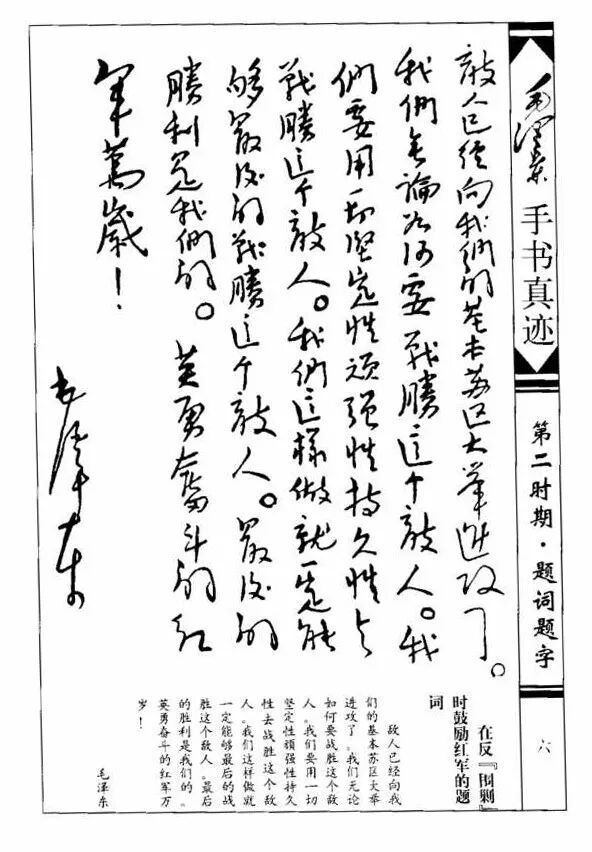 毛泽东
手书真迹
第二时期·题词题字
六
敵人已經向我們的基本苏区大举進攻了。
我們無論如何要戰勝这个敵人。我
們要用一切坚定性頑强性持久性去
戰勝这个敵人。我們这樣做就一定能
够最后的戰勝这个敵人。最后的
勝利是我們的。英勇奮斗的红
軍萬歲！
毛澤东
在反『围剿』
时鼓励红军的题
词
敌人已经向我
们的基本苏区大举
进攻了。我们无论
如何要战胜这个敌
人。我们要用一切
坚定性顽强性持久
性去战胜这个敌
人。我们这样做就
一定能够最后的战
胜这个敌人。最后
的胜利是我们的。
英勇奋斗的红军万
岁！
毛泽东